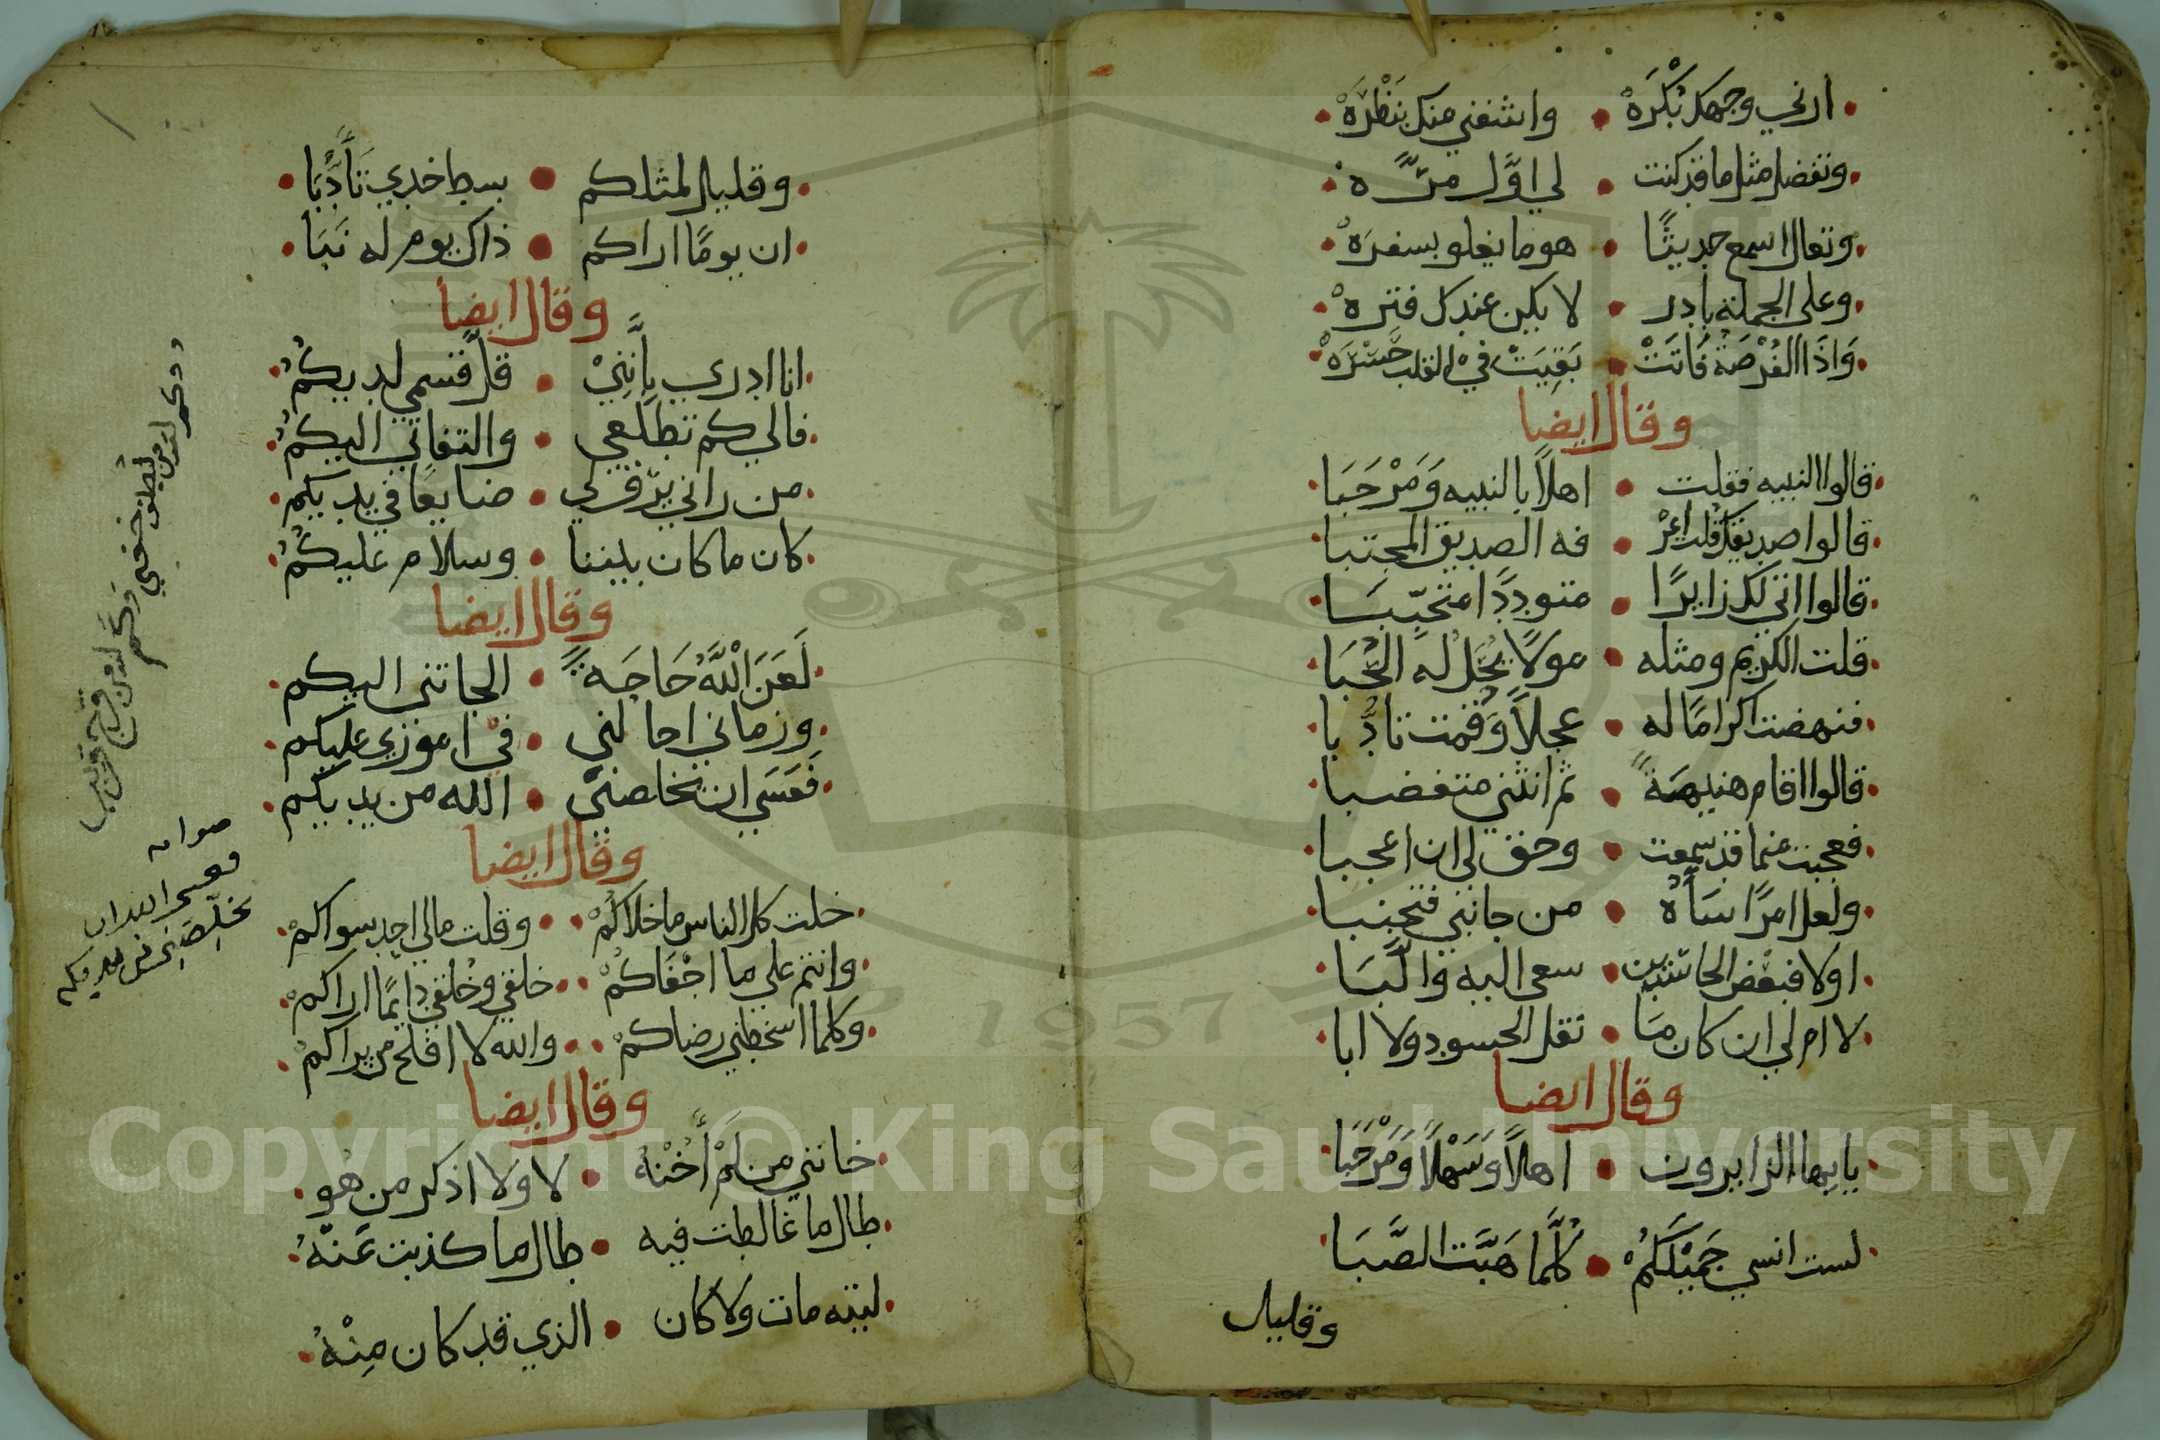 ارني وجهك بُكْرَهْ • واشفني منك بنَظْرَهْ
وتفضل مثل ما قد كنت • لي اوَّل مرَّه
وتعال اسمع حديثًا • هو ما يغلو بسفرَهْ
وعلى الجملة بادر • لا يكن عندك فترهْ
وَاذَا الفُرْصَةُ فَاتَتْ • بَقِيَتْ في القلب حَسْرَهْ
وقال ايضا
قالوا النبيه فقلت • اهلاً بالنبيه وَمَرْحَبَا
قالوا صديقك قلت اعز • فه الصديق المجتبا
قالوا اتى لك زايرًا • متوددًا متحبّبَا
قلت الكريم ومثله • مولاً يُحَل له الحُبَا
فنهضت اكرامًا له • عجلاً وَقمت تادُّبا
قالوا اقام هنيهةً • ثم انثنى متغضبا
فعجبت عنما قد سمعت • وحق لي ان اعجبا
ولعل امرًا سَأَهُ • من جانبي فتجنبا
اولا فبعْض الحاسدين • سعى اليه والَّبَا
لا ام لي ان كان مَا • نقل الحسود ولا ابا
وقال ايضا
يايها الزايرون • اهلاً وَسَهْلاً وَمَرْحَبَا
لست انسي جَمَيْلَكُمْ • كُلَّما هَبَّت الصَّبَا
وقليل
وقليل لمثلكم • بسط خدي تَأَدُّبَا
ان يومًا اراكم • ذاك يوم له نَبَا
وقال ايضا
انا ادري بِأَنَّنِيْ • قلَّ قسمي لديكُمُ
فالي كم تطلّعي • والتفاتي اليكُمُ
من راني يرّق لي • ضايعًا في يديكم
كان ما كان بيننا • وسلام عليكُمُ
وقال ايضا
لَعَنَ اللَّهُ حَاجَةً • الجاتني اليكم
وزماني احالني • في اموري عليكم
فَعَسَي ان يخلصني • الله من يديكم
وقال ايضا
خلت كل الناس ما خلاكُمْ • وقلت مالي احد سواكمْ
وانتم على ما اجْفَاكُمْ • خلفي وخُلْفي دايمًا اراكمْ
وكلما اسخطني رضاكمْ • والله لا افلح من يراكمْ
وقال ايضا
خانني من لَمْ أَخُنْهُ • لا ولا اذكر من هُو
طال ما غالطت فيه • طال ما كذبت عَنْهُ
ليته مات ولا كان • الذي قد كان مِنْهُ
وكم لله من لُطْف خفي
وَكم لله من فرج قريب
صوابه
فعسى الله ان
يخلّصَني من يديكم
Copyright © King Saud University
1957